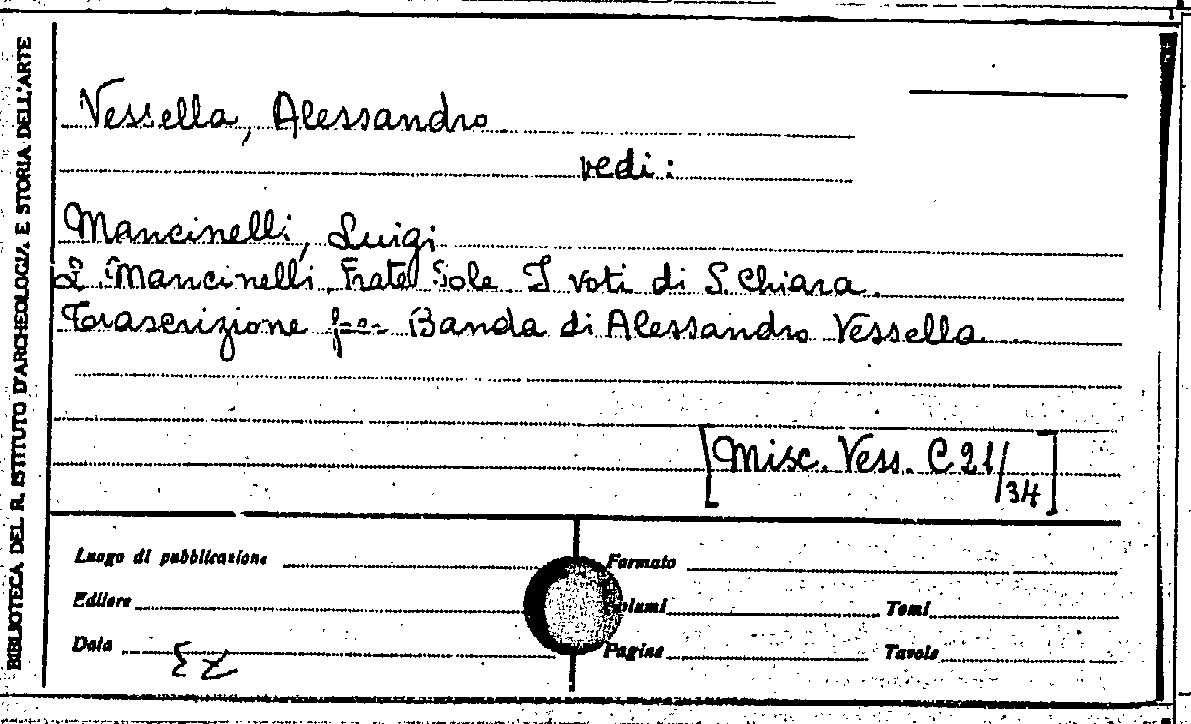 BIBLIOTECA DEL R. ISTITUTO D'ARCHEOLOGIA E STORIA DELL'ARTE
Vessella, Alessandro
vedi:
Mancinelli, Luigi
L. Mancinelli Frate Sole I voti di S. Chiara.
Trascrizione per Banda di Alessandro Vessella
[Misc. Vess. C 21/34]
Luogo di pubblicazione
Formato
Editore
Volumi
Tomi
Data
Pagine
Tavole